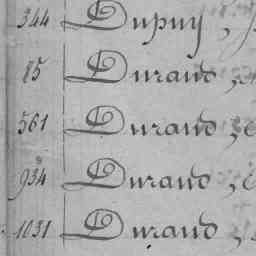 344 Dupuy,
85 Durand,
561 Durand,
934 Durand,
1031 Durand,